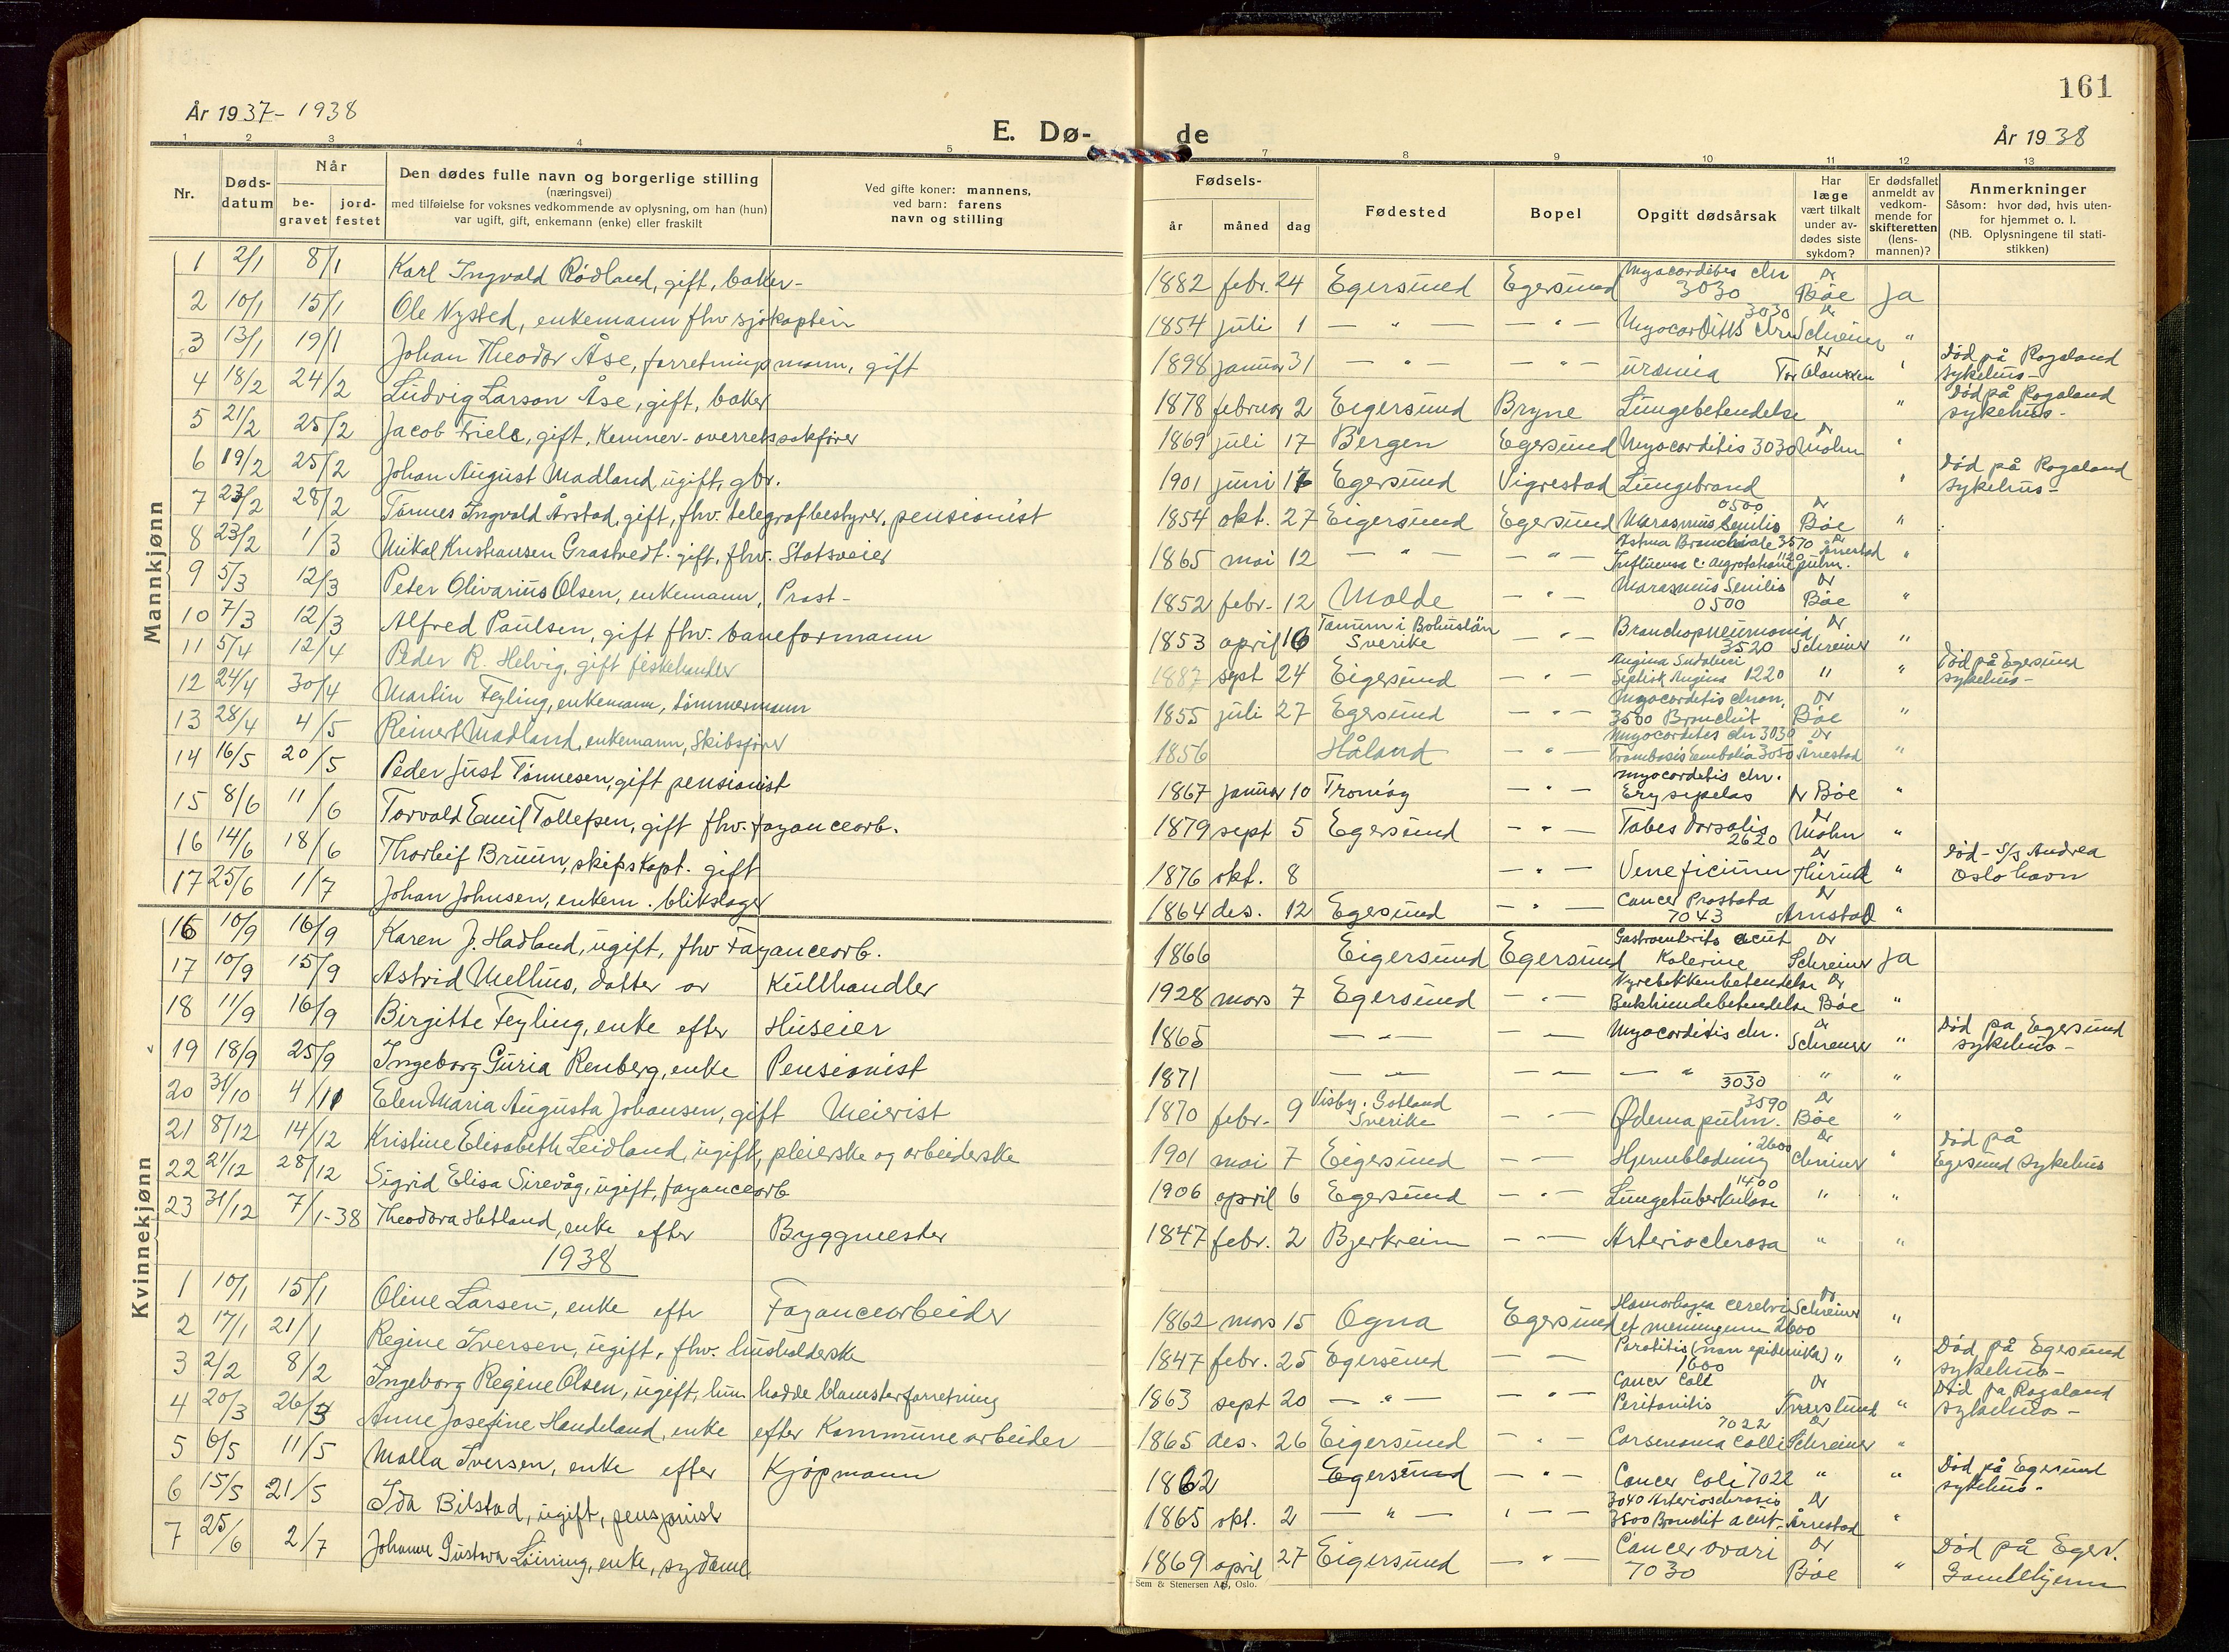 161
År 1937-1938
E. Dø- de
År 1938
1 2 3 4 5 7 8 9 10 11 12 13
Nr.
Døds-
datum
Når
be-
gravet
jord-
festet
Den dødes fulle navn og borgerlige stilling
(næringsvei)
med tilføielse for voksnes vedkommende av oplysning, om han (hun)
var ugift, gift, enkemann (enke) eller fraskilt
Ved gifte koner: mannens,
ved barn: farens
navn og stilling
Fødsels-
år måned dag
Fødested
Bopel
Opgitt dødsårsak
Har
læge
vært tilkalt
under av-
dødes siste
sykdom?
Er dødsfallet
anmeldt av
vedkom-
mende for
skifteretten
(lens-
mannen)?
Anmerkninger
Såsom: hvor død, hvis uten-
for hjemmet o. l.
(NB. Oplysningene til stati-
stikken)
Mannkjønn
1 2/1 8/1 Karl Ingvald Rødland, gift, baker- 1882 febr. 24 Egersund Egersund Myocarditis chr 3030 Dr Bøe Ja
2 10/1 15/1 Ole Nysted, enkemann fhv sjøkaptein 1854 juli 1 — " — — " — Myocarditis chr 3030 Dr Schreiner "
3 13/1 19/1 Johan Theodor Åse, forretningsmann, gift 1898 januar 31 — " — — " — Uræmia Dr " Død på Rogaland sykehus-
4 18/2 24/2 Ludvig Larson Åse, gift, baker 1878 februar 2 Eigersund Bryne Lungebetendelse " Død på Rogaland sykehus-
5 21/2 25/2 Jacob Friele, gift, Kemner-overretssakfører 1869 juli 17 Bergen Egersund Myocarditis 3030 Dr Mohn "
6 19/2 25/2 Johan August Madland ugift, gbr. 1901 juni 17 Egersund Vigrestad Lungebrand " Død på Rogaland sykehus-
7 23/2 28/2 Tønnes Ingvald Årstad, gift, fhv. telegrafbestyrer, pensionist 1854 okt. 27 Eigersund Egersund Marasmus Senilis 0500 Dr Bøe "
8 23/2 1/3 Mikal Kristiansen Grastvedt. gift, fhv. Statsveier 1865 mai 12 — " — — " — Astma Bronchiale 3570 Influensa c. 1120 pulm. Dr Årrestad "
9 5/3 12/3 Peter Olivarius Olsen, enkemann, Prost- 1852 febr. 12 Molde — " — Marasmus Senilis 0500 Dr Bøe "
10 7/3 12/3 Alfred Paulsen, gift fhv. baneformann 1853 april 16 Tanum i Bohuslän Sverike — " — Bronchopneumonia 3520 Dr Schreiner "
11 5/4 12/4 Peder R. Helvig, gift fiskehandler 1887 sept 24 Eigersund — " — Angina Septisk Angina 1220 " " Død på Egersund sykehus-
12 24/4 30/4 Martin Feyling, enkemann, tømmermann 1855 juli 27 Egersund — " — Myocarditis chron, 3500 Bronchit Dr Bøe "
13 28/4 4/5 Reinert Madland, enkemann, Skibsfører 1856 Håland — " — Myocarditis chr 3030 Trombosis Embolia 3050 Dr Årrestad "
14 16/5 20/5 Peder Just Tønnesen, gift pensionist 1867 januar 10 Tromøy — " — Myocarditis chr. Erysipelas Dr Bøe "
15 8/6 11/6 Torvald Emil Tollefsen, gift fhv. fayancearb. 1879 sept 5 Egersund — " — Tabes Dorsalis 2620 Dr Mohn "
16 14/6 18/6 Thorleif Bruun, skipskapt. gift 1876 okt. 8 — " — Veneficium Dr " Død - S/S Andrea Oslo havn
17 25/6 1/7 Johan Johnsen, enkem. blikslager 1864 des. 12 Egersund — " — Cancer Prostata 7043 Dr Årrestad "
Kvinnekjønn
16 10/9 16/9 Karen J. Hadland, ugift, fhv Fayancearb. 1866 Eigersund Egersund Gastroenterits acut Kolerine Dr Schreiner Ja
17 10/9 15/9 Astrid Melhus, datter av Kullhandler 1928 mars 7 Egersund — " — Nyrebekkenbetendelse Bukhinnebetendelse Dr Bøe "
18 11/9 16/9 Birgitte Feyling, enke efter Huseier 1865 — " — — " — Myocarditis chr. Dr Schreiner " Død på Egersund sykehus-
19 18/9 25/9 Ingeborg Guria Renberg, enke Pensionist 1871 — " — — " — — " — 3030 " "
20 31/10 4/11 Elen Maria Augusta Johansen, gift Meierist 1870 febr. 9 Visby. Gotland Sverike — " — Ødema pulm. 3590 Dr Bøe "
21 8/12 14/12 Kristine Elisabeth Leidland, ugift, pleierske og arbeiderske 1901 mai 7 Eigersund — " — Hjerneblødning 2600 Dr Schreiner " Død på Egersund sykehus
22 21/12 28/12 Sigrid Elisa Sirevåg, ugift, fayancearb 1906 april 6 Egersund — " — Lungetuberkulose 1400 " "
23 31/12 7/1-38 Theodora Hetland, enke efter Byggmester 1847 febr. 2 Bjerkreim — " — Arteriosclerosa " "
1938
1 10/1 15/1 Oline Larsen, enke eftr Fayancearbeider 1862 mars 15 Ogna Egersund Hæmorhagia cerebri et meningum 2600 Dr Schreiner "
2 17/1 21/1 Regine Iversen, ugift, fhv. husholderske 1847 febr. 25 Egersund — " — Parotitis (non epidemika) 1600 " " Død på Egersund sykehus-
3 2/2 8/2 Ingeborg Regine Olsen, ugift, hun hadde blomsterforretning 1863 sept 20 — " — — " — Cancer Coli Peritonitis Dr " Død på Rogaland sykehus-
4 20/3 26/3 Anne Josefine Handeland, enke efter Kommunearbeider 1865 des. 26 Eigersund — " — Carsenoma Colli 7022 Dr Schreiner "
5 6/5 11/5 Malla Iversen, enke efter Kjøpmann 1862 Egersund — " — Cancer Coli 7022 " " Død på Egersund sykehus-
6 15/5 21/5 Ida Bilstad, ugift, pensjonist 1865 okt. 2 — " — — " — 3040 Arteriosclerosis 3500 Bronchit acut Dr Årrestad "
7 25/6 2/7 Johanne Gustava Løining, enke, sydame 1869 april 27 Eigersund — " — Cancer ovari 7030 Dr Bøe " Død på Egers. Gamlehjem
Sem & Stenersen A/S, Oslo.